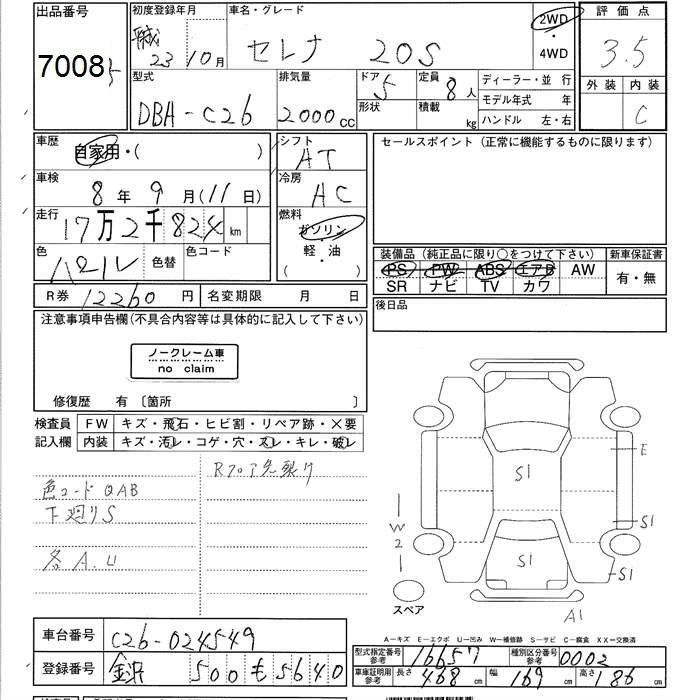 出品番号
7008
初度登録年月
平成 23 10月
車名・グレード
セレナ 20S
2WD
・
4WD
評価点
3.5
外装 内装
C
型式
DBA-C26
排気量
2000 CC
ドア
5
形状
定員
8 人
積載
kg
ディーラー・並 行
モデル年式 年
ハンドル 左・右
車歴
自家用・( )
車検
8 年 9 月(11日)
走行
17万2千824 km
色
パール
色替
色コード
シフト
AT
冷房
AC
燃料
ガソリン
軽・油
( )
セールスポイント(正常に機能するものに限ります)
装備品(純正品に限り○をつけて下さい)
PS PW ABS エアB AW
SR ナビ TV カワ
新車保証書
有・無
R券 12260 円
名変期限 月 日
後日品
注意事項申告欄(不具合内容等は具体的に記入して下さい)
ノークレーム車
no claim
修復歴 有〔箇所 〕
検査員
記入欄
FW キズ・飛石・ヒビ割・リペア跡・×要
内装 キズ・汚レ・コゲ・穴・スレ・キレ・破レ
色コードQAB
下廻りS
各A.U
Rフロア先裂け
E
S1
S1
W2
S1
S1
スペア
A1
A-キズ E-エクボ U-凹み W-補修跡 S-サビ C-腐食 XX-交換済
車台番号 C26-024549
登録番号 500 も 5640
型式指定番号
参考
16657
種別区分番号
参考
0002
車庫証明用
参考
長さ 468 cm
幅 169 cm
高さ 186 cm